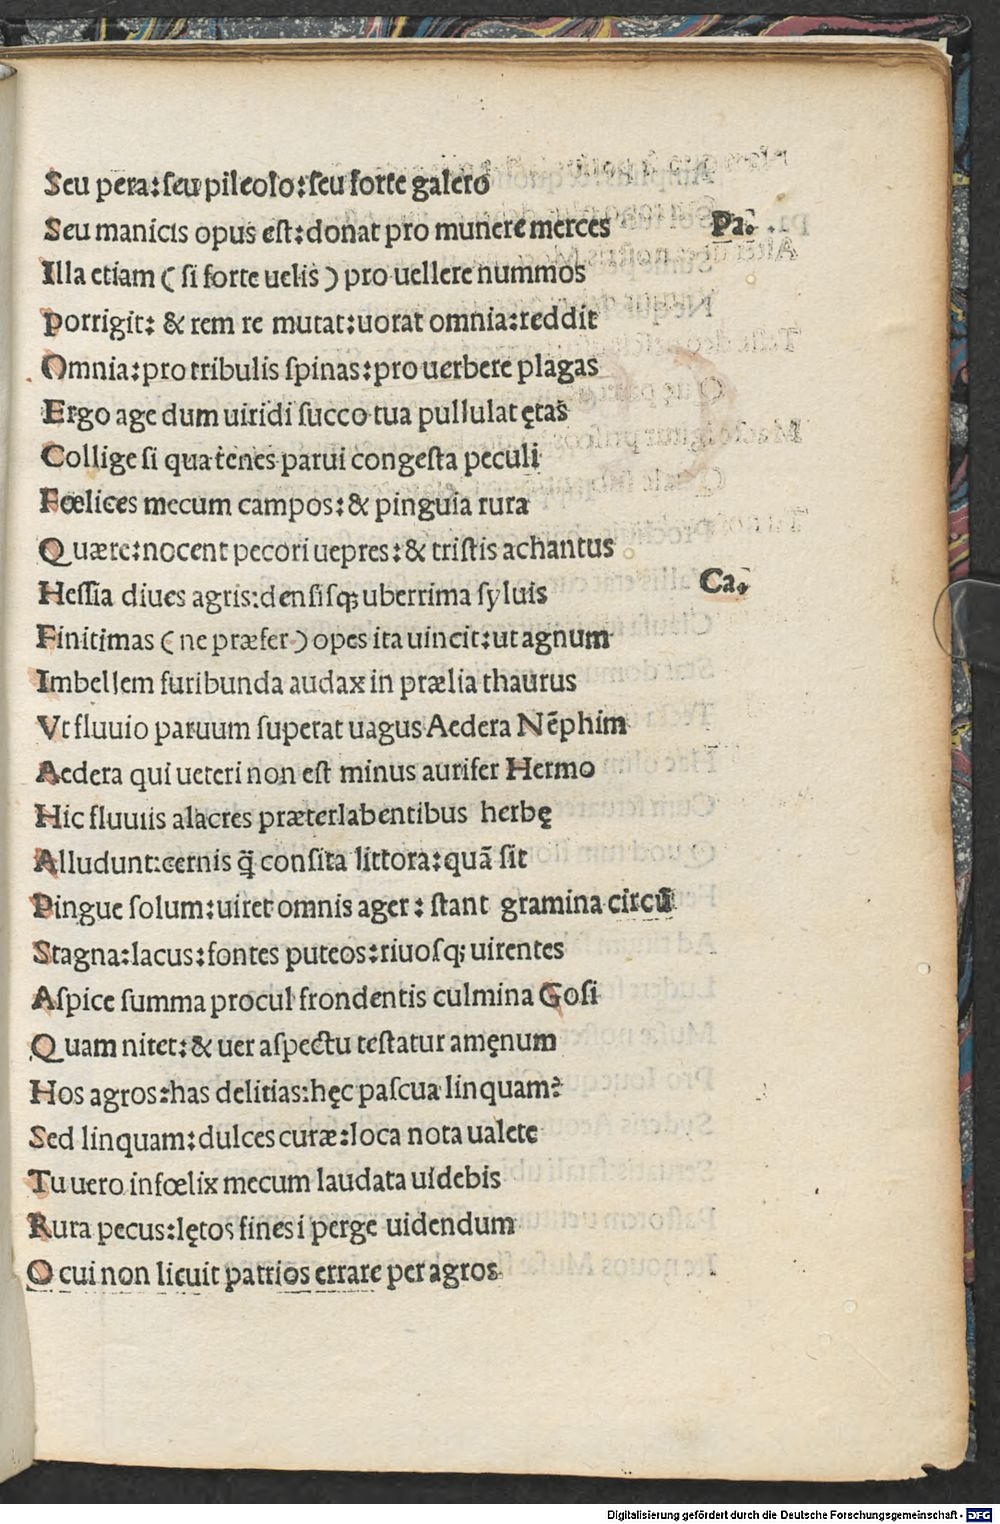 Seu pera:seu pileolo:seu forte galero
Seu manicis opus est:donat pro munere merces Pa.
Illa etiam ( si forte uelis ) pro uellere nummos
Porrigit: & rem re mutat:uorat omnia:reddit
Omnia:pro tribulis spinas:pro uerbere plagas
Ergo age dum uiridi succo tua pullulat ętas
Collige si qua tenes parui congesta peculi
Fœlices mecum campos:& pinguia rura
Quære:nocent pecori uepres:& tristis achantus
Hessia diues agris:densisq; uberrima syluis Ca.
Finitimas ( ne præfer ) opes ita uincit:ut agnum
Imbellem furibunda audax in prælia thaurus
Vt fluuio paruum superat uagus Aedera Nēphim
Aedera qui ueteri non est minus aurifer Hermo
Hic fluuiis alacres præterlabentibus herbę
Alludunt:cernis q̃ consita littora:quā sit
Pingue solum:uiret omnis ager: stant gramina circū
Stagna:lacus:fontes puteos:riuosq; uirentes
Aspice summa procul frondentis culmina Gosi
Quam nitet:& uer aspectu testatur amęnum
Hos agros:has delitias:hęc pascua linquam?
Sed linquam:dulces curæ:loca nota ualete
Tu uero infœlix mecum laudata uidebis
Rura pecus:lętos fines i perge uidendum
O cui non licuit patrios errare per agros
Digitalisierung gefördert durch die Deutsche Forschungsgemeinschaft - DFG